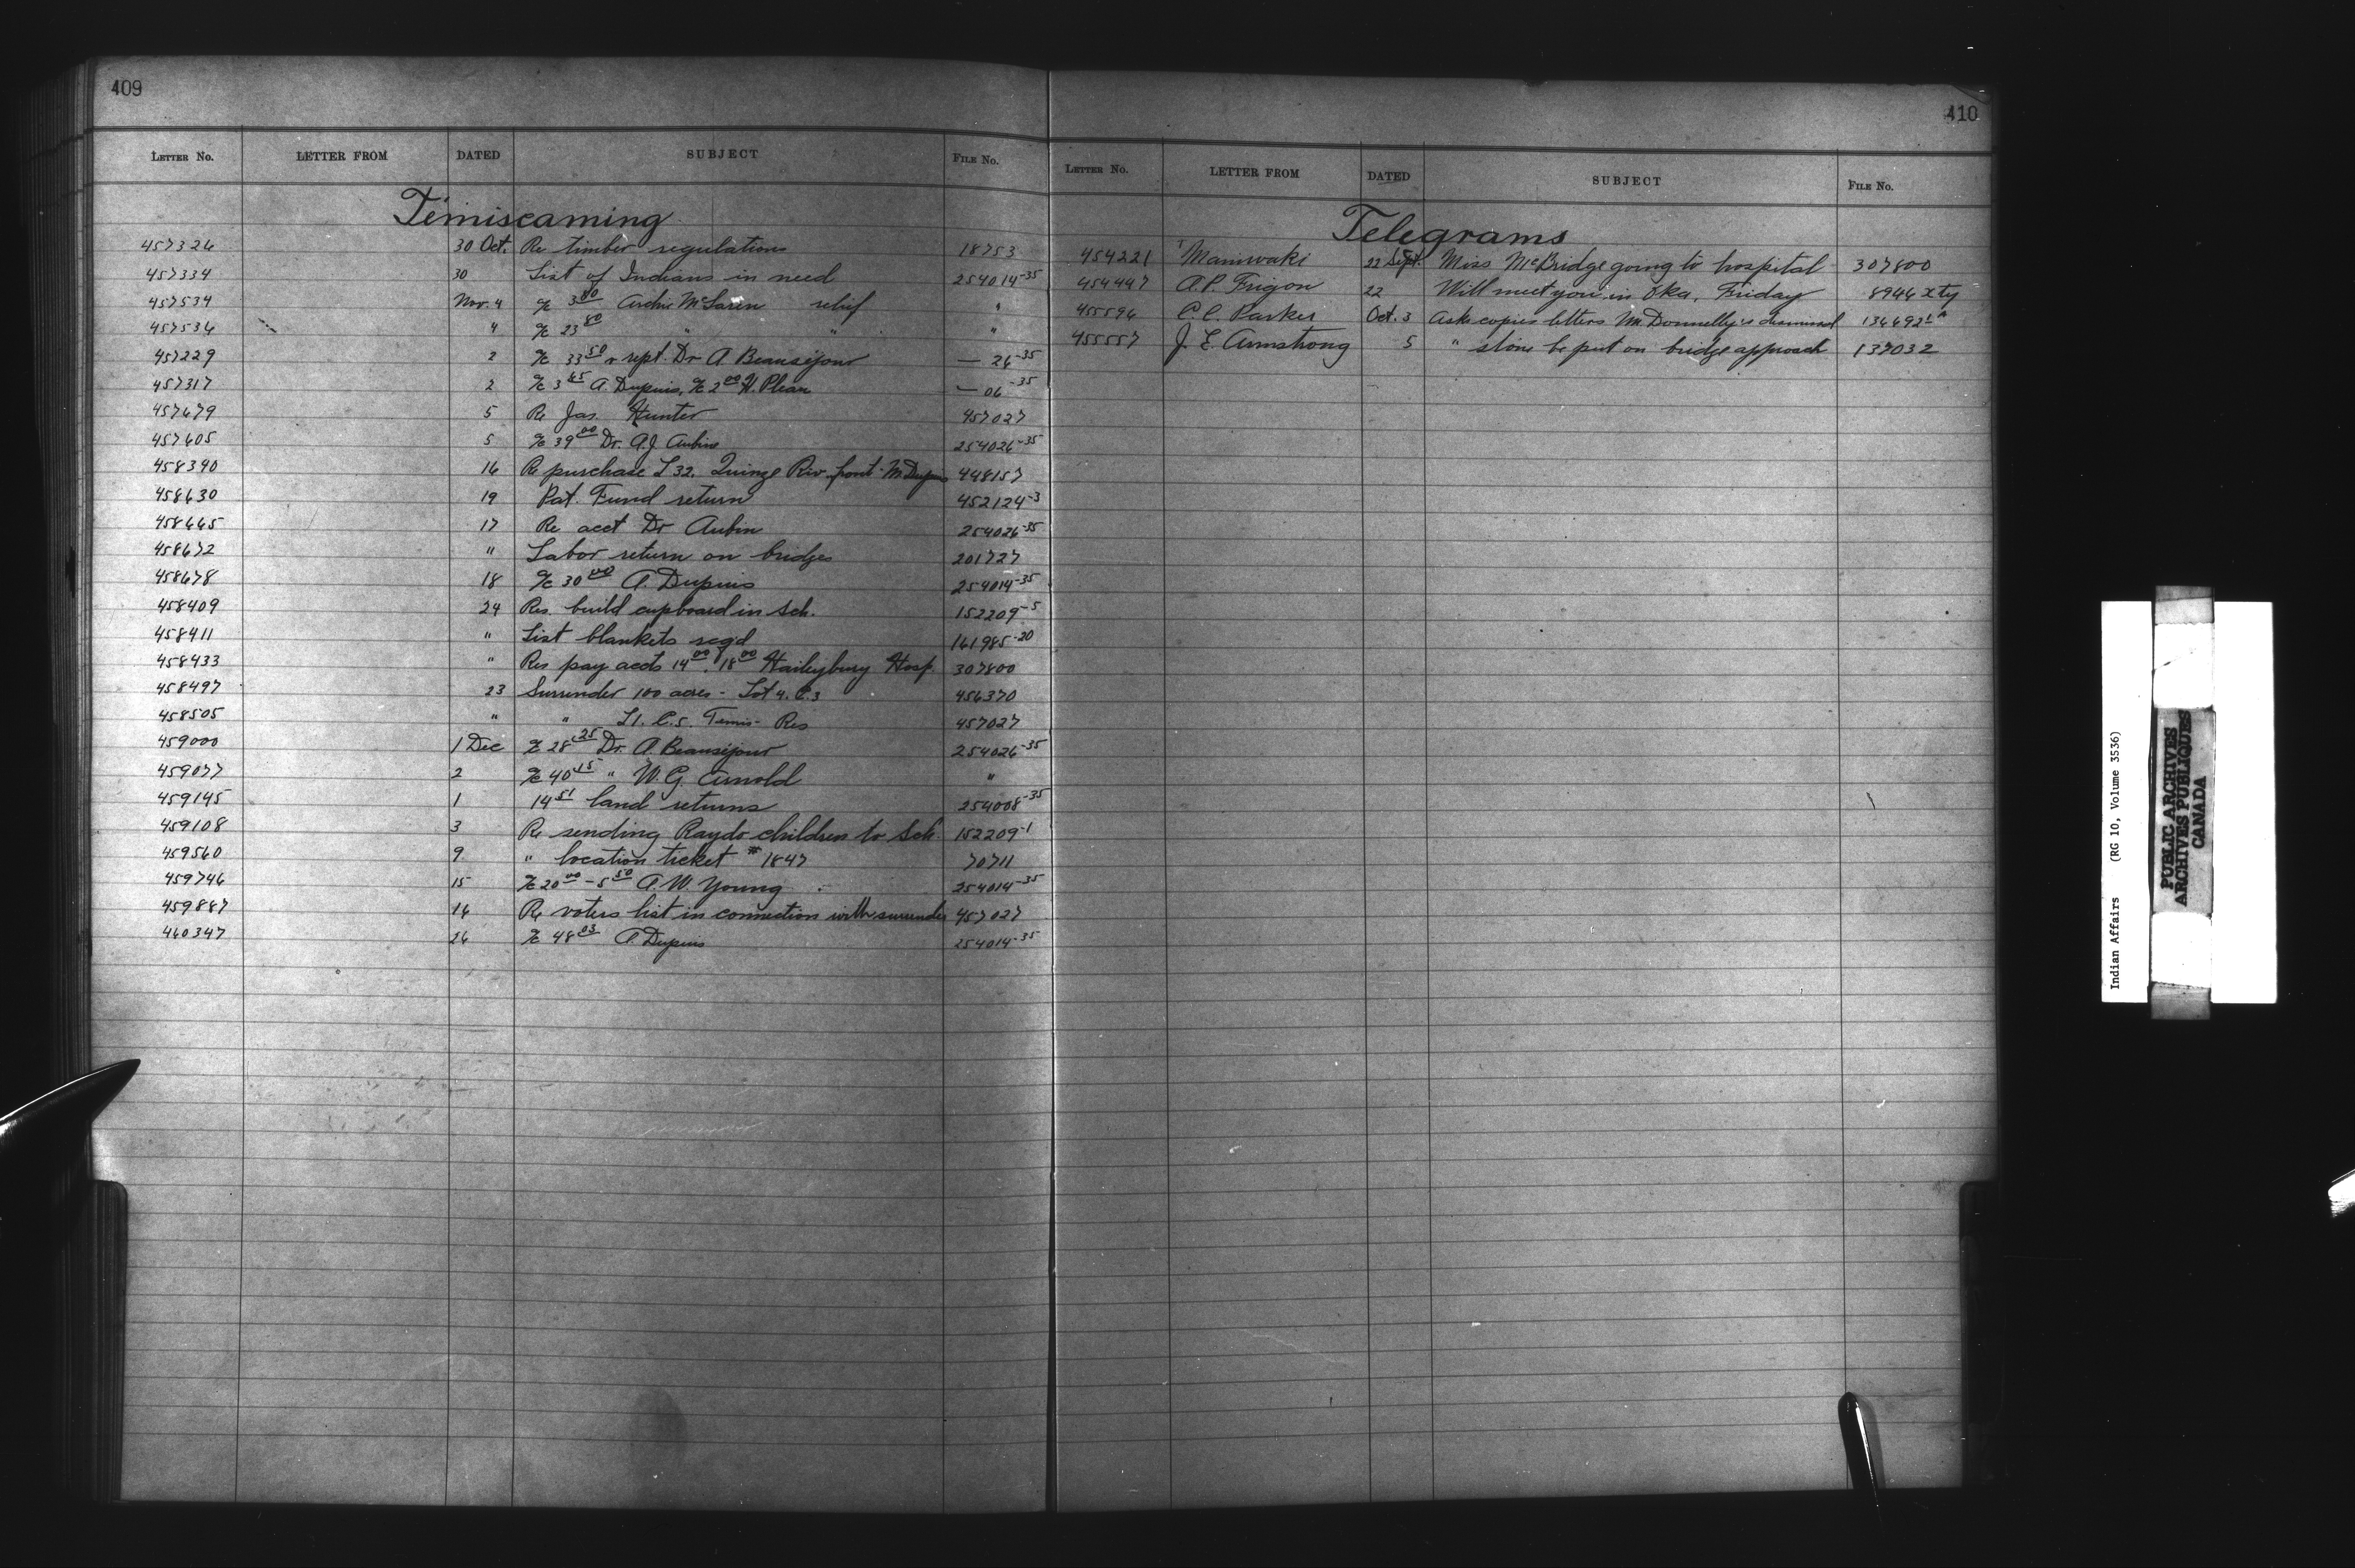 409
LETTER No. LETTER FROM DATED SUBJECT FILE No.
Temiscaming
457326 30 Oct. Re timber regulations 18753
457334 30 List of Indians in need 254014-35
457534 Nov. 4 a/c 3 00 Archie McLaren relief "
457536 4 a/c 23 80 " " "
457229 2 a/c 33 50 & rept. Dr A. Beausejour — 26-35
457317 2 a/c 3 65 A. Dupuis, a/c 2 00 H. Plean — 06-35
457679 5 Re Jas. Hunter 457027
457605 5 a/c 39 00 Dr. A.J. Aubin 254026-35
458390 16 Re purchase L 32. Quinze Riv. front - M Dupuis 448157
458630 19 Pat. Fund return 452124-3
458665 17 Re acct Dr Aubin 254026-35
458672 " Labor return on bridges 201727
458678 18 a/c 30 00 A. Dupuis 254014-35
458409 24 Res. build cupboard in Sch. 152209-5
458411 " List blankets reqd 161985-20
458433 " Res pay accts 14 00, 18 00 Haileybury Hosp. 307800
458497 23 Surrender 100 acres - Lot 4. C. 3 456370
458505 " " L1. C.5. Temis- Res 457027
459000 1 Dec a/c 28 25 Dr. A. Beausejour 254026-35
459077 2 a/c 40 15 " W.G. Arnold "
459145 1 14 51 land returns 254008-35
459108 3 Re sending Raydo children to Sch. 152209-1
459560 9 " location ticket #1847 70711
459746 15 a/c 20 00 - 5 50 A.W. Young 254014-35
459887 16 Re voters list in connection with surrender 457027
460347 26 a/c 48 03 A. Dupuis 254014-35
410
LETTER No. LETTER FROM DATED SUBJECT FILE No.
Telegrams
454221 Maniwaki 22 Sept. Miss McBridge going to hospital 307800
454447 A.P. Frigon 22 Will meet you in Oka, Friday 8946 xty
455596 C.C. Parker Oct. 3 Asks copies letters Mr. Donnelly's dismissal
455557 J.E. Armstrong 5 " stone be put on bridge approach 137032
Indian Affairs (RG 10, Volume 3536)
PUBLIC ARCHIVES
ARCHIVES PUBLIQUES
CANADA